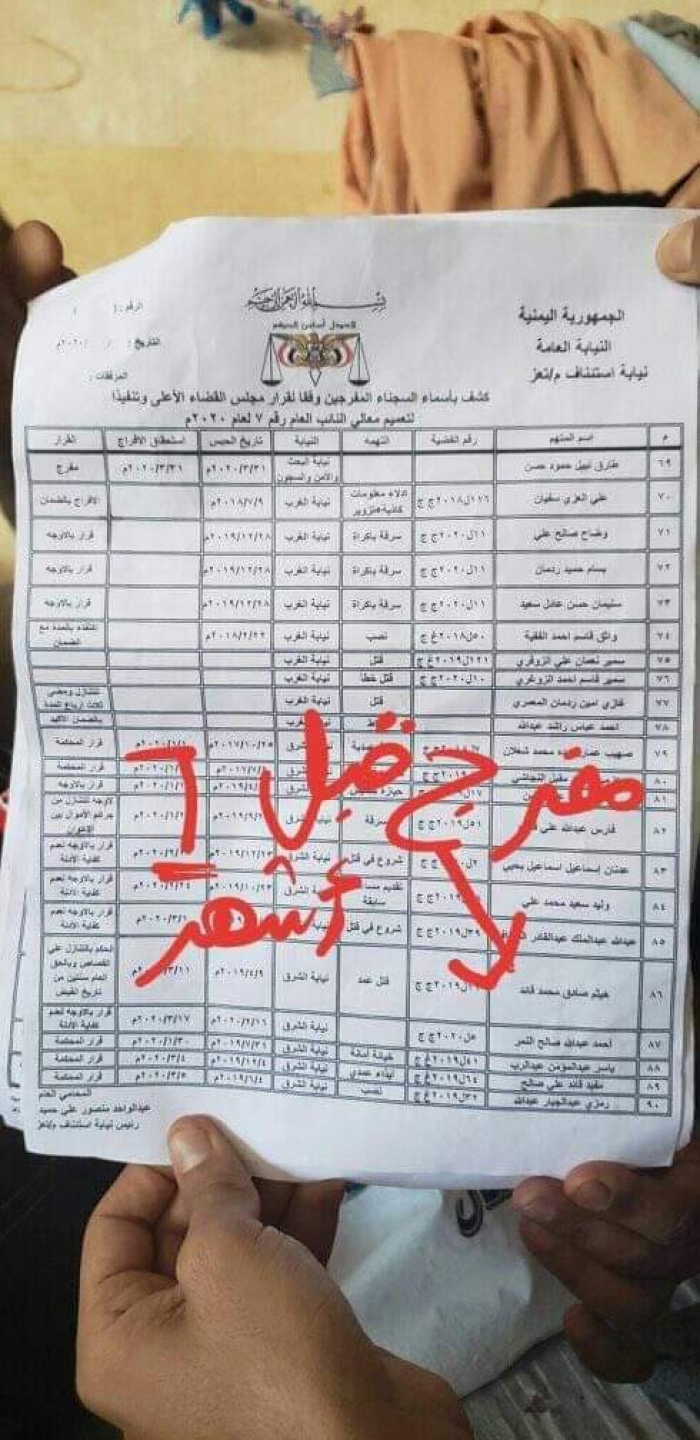 بسم الله الرحمن الرحيم
الجمهورية اليمنية
النيابة العامة
نيابة استئناف م/تعز
الرقم: ( )
التاريخ: / / ٢٠٢٠م
المرفقات:
كشف بأسماء السجناء المفرجين وفقا لقرار مجلس القضاء الأعلى وتنفيذا
لتعميم معالي النائب العام رقم ٧ لعام ٢٠٢٠م
م اسم المتهم رقم القضية التهمه النيابة تاريخ الحبس استحقاق الافراج القرار
٦٩ طارق نبيل حمود حسن نيابة البحث والأمن والسجون ٢٠٢٠/٣/٣١م ٢٠٢٠/٣/٣١م مفرج
٧٠ علي العزي سفيان ١٧٦ل٢٠١٨ج ج ادلاء معلومات كاذبة+تزوير نيابة الغرب ٢٠١٨/٧/٩م الافراج بالضمان
٧١ وضاح صالح علي ١١ل٢٠٢٠ج ج سرقة باكراة نيابة الغرب ٢٠١٩/١٢/٢٨م قرار بالاوجه
٧٢ بسام حميد ردمان ١١ل٢٠٢٠ج ج سرقة باكراة نيابة الغرب ٢٠١٩/١٢/٢٨م قرار بالاوجه
٧٣ سليمان حسن عادل سعيد ١١ل٢٠٢٠ج ج سرقة باكراة نيابة الغرب ٢٠١٩/١٢/٢٨م قرار بالاوجه
٧٤ واثق قاسم احمد الفقية ٥٠ل٢٠١٨غ ج نصب نيابة الغرب ٢٠١٨/٢/٢٢م بالمدة مع الضمان
٧٥ سمير نعمان علي الزوقري ١٢١ل٢٠١٩غ ج قتل نيابة الغرب
٧٦ سمير قاسم احمد الزوغري ١٠ل٢٠٢٠غ ج قتل خطأ نيابة الغرب
٧٧ غازي امين ردمان المصري قتل نيابة الغرب تنازل ومضى ثلاث ارباع المدة
٧٨ احمد عباس راشد عبدالله الغرب بالضمان الاكيد
٧٩ صهيب محمد شعلان الشرق ٢٠١٧/١٠/٢٥م قرار المحكمة
٨٠ مقبل النجاشي قرار المحكمة
٨١ قرار بالاوجه
٨٢ فارس عبدالله علي ٥١ل٢٠١٩ج ج سرقة لاوجه للتنازل من جرائم الأموال بين الاخوان
٨٣ عدنان إسماعيل اسماعيل يحيى شروع في قتل نيابة الشرق ٢٠١٩/١٢/٢٣م قرار بالاوجه لعدم كفاية الأدلة
٨٤ وليد سعيد محمد علي تقديم سابقة نيابة الشرق قرار بالاوجه لعدم كفاية الأدلة
٨٥ عبدالله عبدالملك عبدالقادر شروع في قتل ٢٠٢٠/٣/١م قرار بالاوجه لعدم كفاية الأدلة
٨٦ هيثم صادق محمد قائد قتل عمد نيابة الشرق ٢٠١٩/٤/٩م ٢٠٢٠/٣/١١م الحكم بالتنازل على القصاص وبالحق العام سنتين من تاريخ القبض
٨٧ أحمد عبدالله صالح النمر ٥ل٢٠٢٠ج ج نيابة الشرق ٢٠٢٠/٢/١٦م ٢٠٢٠/٣/١٧م قرار بالاوجه لعدم كفاية الأدلة
٨٨ ياسر عبدالمؤمن عبدالرب ٤١ل٢٠١٩غ ج خيانة أمانة نيابة الشرق ٢٠١٩/٧/٣١م ٢٠٢٠/١/٣٠م قرار المحكمة
٨٩ مفيد قائد علي صالح ٦٤ل٢٠١٩غ ج ايذاء عمدي نيابة الشرق ٢٠١٩/١٢/٤م ٢٠٢٠/٣/٤م قرار المحكمة
٩٠ رمزي عبدالجبار عبدالله ٣٦ل٢٠١٩غ ج نصب نيابة الشرق ٢٠١٩/٦/٤م ٢٠٢٠/٣/٥م قرار المحكمة
المحامي العام
عبدالواحد منصور علي حميد
رئيس نيابة استئناف م/تعز
مفرج قبل ٦
أشهر